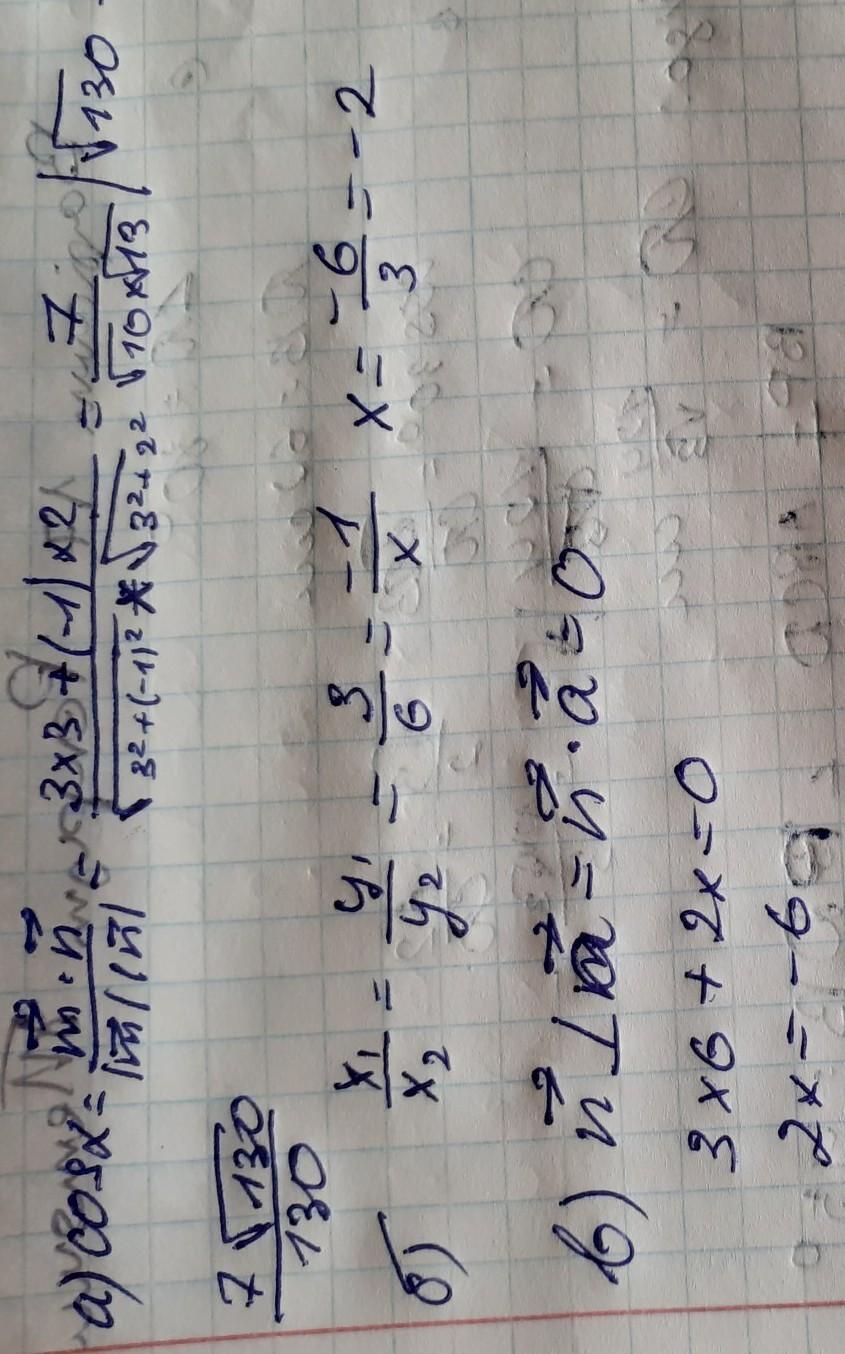 а) cosα = m⃗·n⃗ / |m⃗||n⃗| = 3×3+(-1)×2 / √3²+(-1)² × √3²+2² = 7 / √10×√13 | √130
7√130 / 130
б) x₁/x₂ = y₁/y₂ = 3/6 = -1/x x = -6/3 = -2
в) n⃗ ⊥ a⃗ = n⃗·a⃗ = 0
3×6 + 2x = 0
2x = -6